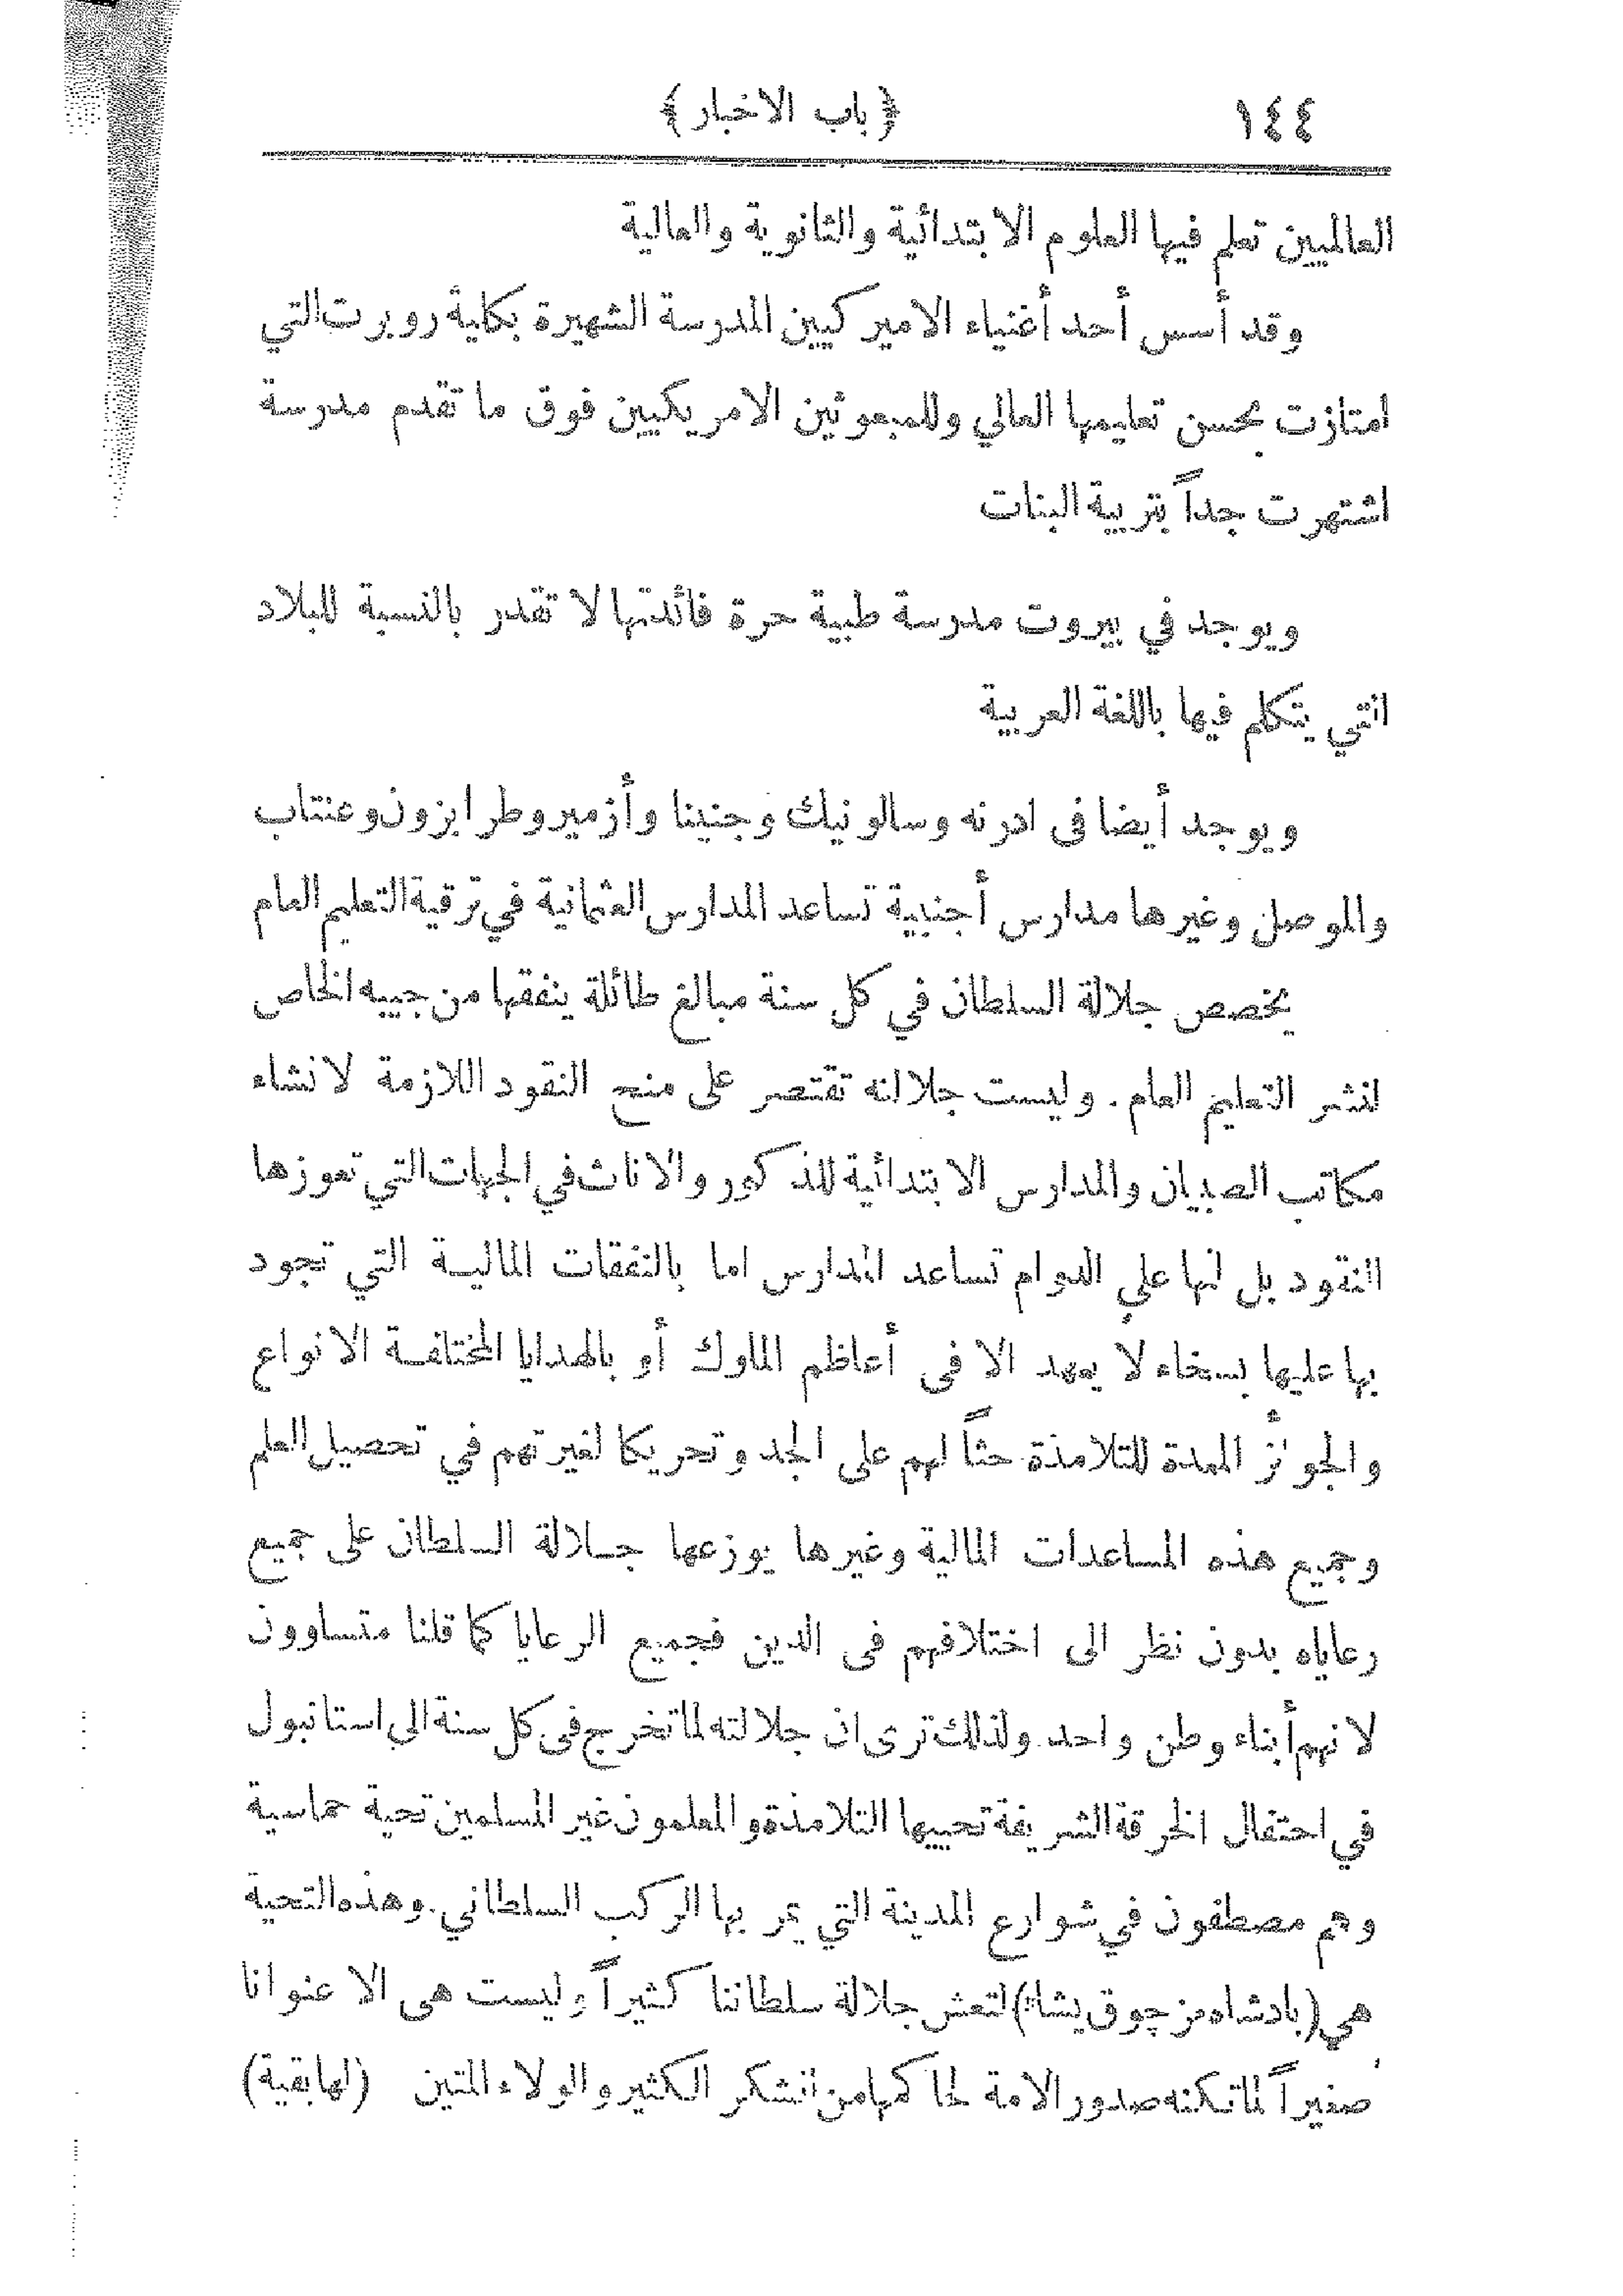 ١٤٤ ﴿ باب الاخبار ﴾
العالميين تعلم فيها العلوم الابتدائية والثانوية والعالية
وقد أسس أحد أغنياء الاميركيين المدرسة الشهيرة بكلية روبرت التي
امتازت بحسن تعليمها العالي وللمبعوثين الامريكيين فوق ما تقدم مدرسة
اشتهرت جداً بتربية البنات
ويوجد في بيروت مدرسة طبية حرة فائدتها لا تقدر بالنسبة للبلاد
التي يتكلم فيها باللغة العربية
ويوجد أيضا في ادرنه وسالونيك وجنينا وأزمير وطرابزون وعنتاب
والموصل وغيرها مدارس أجنبية تساعد المدارس العثمانية في ترقية التعليم العام
يخصص جلالة السلطان في كل سنة مبالغ طائلة ينفقها من جيبه الخاص
لنشر التعليم العام . وليست جلالته تقتصر على منح النقود اللازمة لانشاء
مكاتب الصبيان والمدارس الابتدائية للذكور والاناث في الجهات التي تعوزها
النقود بل انها علي الدوام تساعد المدارس اما بالنفقات المالية التي تجود
بها عليها بسخاء لا يعهد الا في أعاظم الملوك أو بالهدايا المختلفة الانواع
والجوائز المعدة للتلامذة حثاً لهم على الجد وتحريكا لغيرتهم في تحصيل العلم
وجميع هذه المساعدات المالية وغيرها يوزعها جلالة السلطان على جميع
رعاياه بدون نظر الى اختلافهم في الدين فجميع الرعايا كما قلنا متساوون
لانهم أبناء وطن واحد ولذلك ترى ان جلالته لما تخرج في كل سنة الي استانبول
في احتفال الخرقة الشريفة تحييها التلامذة والمعلمون غير المسلمين تحية حماسية
وهم مصطفون في شوارع المدينة التي يمر بها الركب السلطاني . وهذه التحية
هي (بادشاه مز چوق يشا) لتعش جلالة سلطاننا كثيراً وليست هي الا عنوانا
صغيراً لما تكنه صدور الامة لحاكمها من الشكر الكثير والولاء المتين (لها بقية)